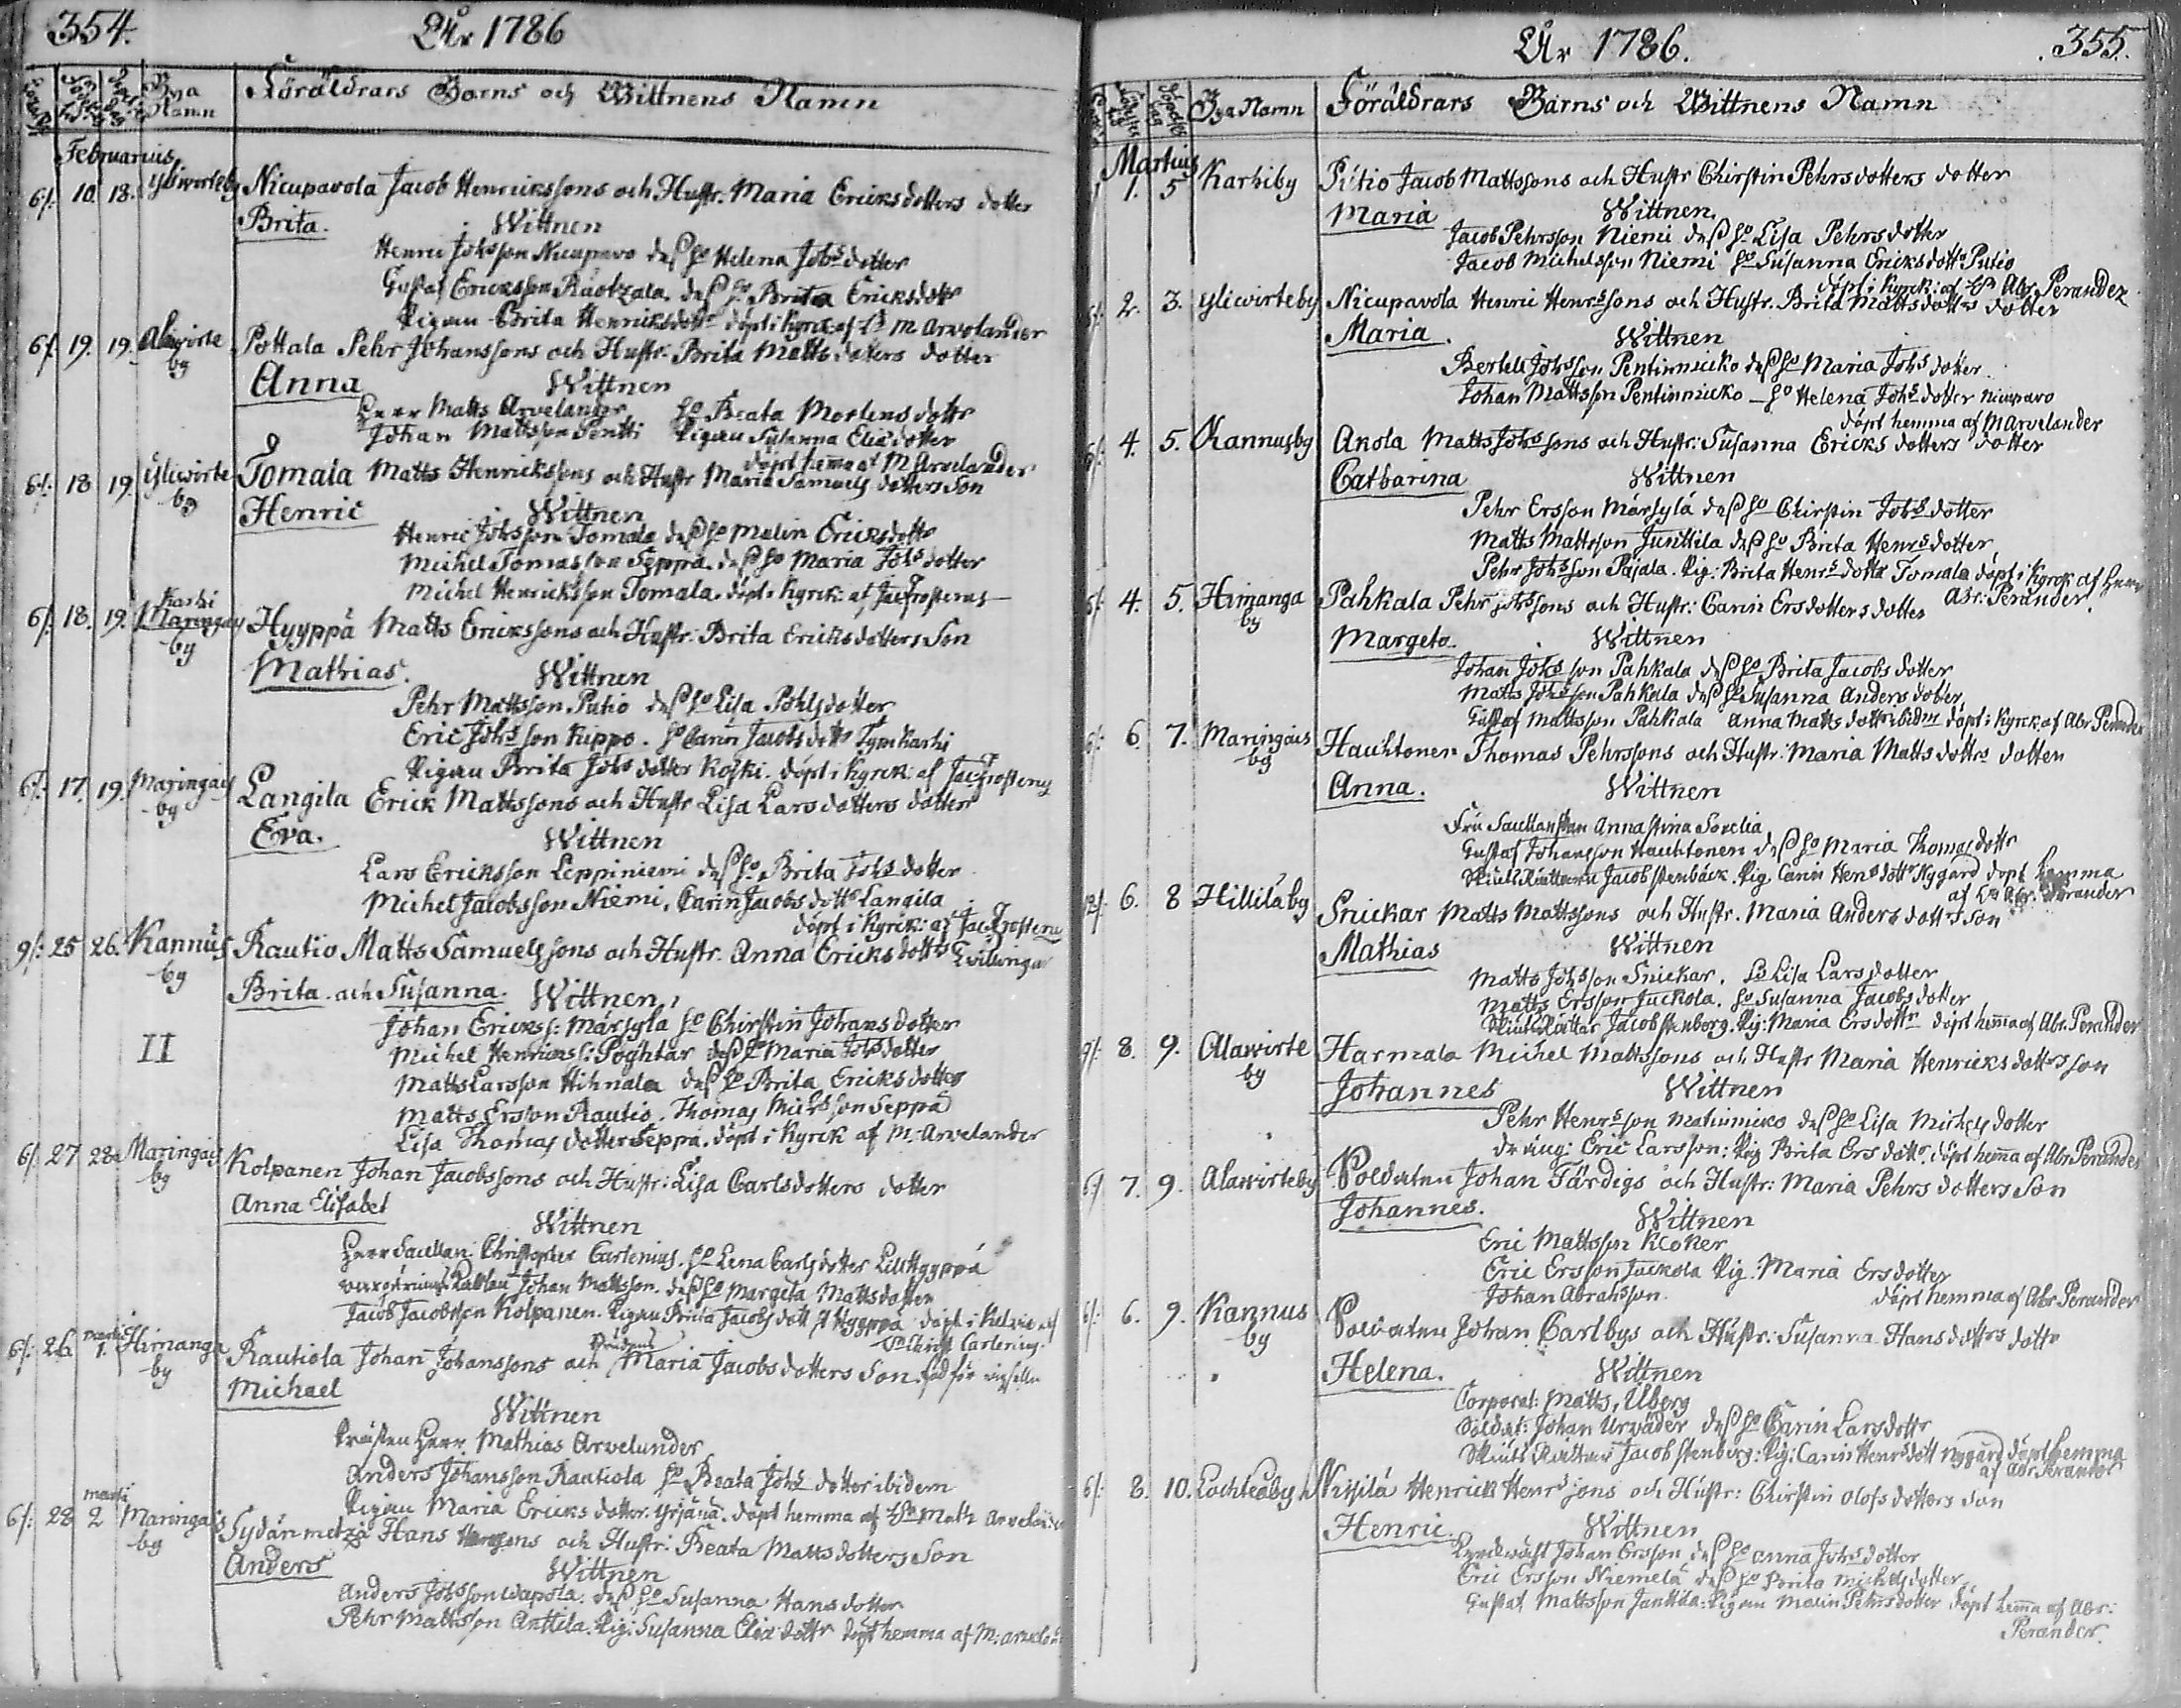 354. År 1786
Bya Namn Föräldrars Barns och Wittnens Namn
Februarius
6/. 10. 18. Yliwirteby Nicupavola Jacob Henrickssons och Hustr. Maria Ericksdotters dotter
Brita. Wittnen
Henric Johsson Nicupavo dess ho Helena Johsdotter
Gustaf Ericksson Räotzala, dess ho Brita Ericksdottr
Pigan Brita Henricksdottr döpt i Kyrck: af M Arvelander
6/. 19. 19. Alawirte by Pottala Pehr Johanssons och Hustr. Brita Mattsdotters dotter
Anna Wittnen
Herr Matts Arvelander, ho Beata Mortensdottr
Johan Mattsson Pentti Pigan Susanna Eliædotter
döpt hemma af M Arvelander
6/. 18 19. Yliwirte by Tomala Matts Henrickssons och Hustr Maria Samuelsdotters Son
Henric Wittnen
Henric Johsson Tomala dess ho Malin Ericksdottr
Michel Tomasson Seppä. dess ho Maria Johsdotter
Michel Henricksson Tomala. döpt i Kyrck: af Jac Frosterus
6/. 18. 19. Karhi Maringais by Hyyppä Matts Erickssons och Hustr: Brita Ericksdotters Son
Mathias. Wittnen
Pehr Mattsson Putio dess ho Lisa Pohlsdotter
Eric Johsson Kuppo. ho Carin Jacobsdottr Typpkarhi
Pigan Brita Johsdotter Koski. döpt i Kyrck: af Jac Frosterus
6/. 17. 19. Maringais by Langila Erick Mattssons och Hustr Lisa Larsdotters dotter
Eva. Wittnen
Lars Ericksson Leppiniemi dess ho Brita Johsdotter
Michel Jacobsson Niemi, Carin Jacobsdottr Langila
döpt i Kyrck: af Jac Frosterus
9/. 25 26. Kannus by Rautio Matts Samuelssons och Hustr. Anna Ericksdottrs Twillingar
Brita och Susanna. Wittnen,
Johan Erickss: Märsylä ho Chirstin Johansdotter
II Michel Henricks: Poghtar dess ho Maria Johsdotter
Matts Larsson Hihnala dess ho Brita Ericksdotter
Matts Ersson Rautio. Thomas Michsson Seppä
Lisa Thomasdotter Seppä. döpt i Kyrck af M. Arvelander
6/. 27 28. Maringais by Kolpanen Johan Jacobssons och Hustr: Lisa Carlsdotters dotter
Anna Elisabet Wittnen
Herr Christopher Carlenius. ho Lena Carlsdotter Lill Hyyppä
Johan Mattsson. dess ho Margeta Mattsdotter
Jacob Jacobsson Kolpanen. Pigan Brita Jacobsdott Hyyppä döpt i Kelvie af
Christ Carlenius.
6/. 26 martii 1. Himanga by Rautiola Johan Johanssons och Maria Jacobsdotters Son
Michael Wittnen
Prästen Herr Mathias Arvelander
Anders Johansson Rautiola ho Beata Johsdotter ibidem
Pigan Maria Ericksdotter Yrjänä. döpt hemma af Math Arvelander
6/. 28 martii 2 Maringais by Sydänmetzä Hans Hanssons och Hustr: Beata Mattsdotters Son
Anders Wittnen
Anders Johsson Wapola. dess ho Susanna Hansdotter
Pehr Mattsson Anttila. Pig: Susanna Eliædottr döpt hemma af M: Arvelan
År 1786. 355.
Bya Namn Föräldrars Barns och Wittnens Namn
Martius
1. 5 Karhiby Putio Jacob Mattssons och Hustr Chirstin Pehrsdotters dotter
Maria Wittnen
Jacob Pehrsson Niemi dess ho Lisa Pehrsdotter
Jacob Michelsson Niemi ho Susanna Ericksdottr Putio
döpt i Kyrck: af Abr. Perander
2. 3. Yliwirteby Nicupavola Henric Henrssons och Hustr. Brita Mattsdottrs dotter
Maria. Wittnen
Bertell Johsson Pentinnicko dess ho Maria Johsdotter.
Johan Mattsson Pentinnicko ho Helena Johsdotter Nicupavo
döpt hemma af M Arvelander
4. 5. Kannusby Anola Matts Johssons och Hustr: Susanna Ericksdotters dotter
Catharina Wittnen
Pehr Ersson Märsylä dess ho Chirstin Johsdotter
Matts Mattsson Junttila dess ho Brita Henrsdotter
Pehr Johsson Pajala. Pig: Brita Henrsdottr Tomala döpt i Kyrck af Herr
Abr: Perander.
4. 5. Himanga by Pahkala Pehr Johssons och Hustr: Carin Ersdotters dotter
Margeta. Wittnen
Johan Johsson Pahkala dess ho Brita Jacobsdotter
Matts Johsson Pahkala dess ho Susanna Andersdotter
Gustaf Mattsson Pahkala Anna Mattsdottr ibidm döpt i Kyrck af Abr Perander
6. 7. Maringais by Hauhtonen Thomas Pehrssons och Hustr: Maria Mattsdottrs dotter
Anna. Wittnen
Fru Anna Stina
Gustaf Johansson Hauhtonen dess ho Maria Thomasdottr
Jacob Stenbäck. Pig Carin Henrsdottr Nygård döpt hemma
af Abr. Perander
6. 8 Hilliläby Snickar Matts Mattssons och Hustr. Maria Andersdottrs Son
Mathias Wittnen
Matts Johsson Snickar. ho Lisa Larsdotter
Matts Ersson Juckola. ho Susanna Jacobsdotter
Jacob Stenberg. Pig: Maria Ersdottr döpt hema af Abr. Perander
9/. 8. 9. Alawirte by Harmala Michel Mattssons och Hustr Maria Henricksdottrs Son
Johannes Wittnen
Pehr Henrsson Matinnicko dess ho Lisa Michelsdotter
dräng: Eric Larsson: Pig Brita Ersdottr. döpt hema af Abr Perander
6/ 7. 9. Alawirteby Soldaten Johan Färdigs och Hustr: Maria Pehrsdotters Son
Johannes. Wittnen
Eric Mattsson Klåker
Eric Ersson Juckola Pig. Maria Ersdotter
Johan Abrahsson. döpt hemma af Abr Perander
6/. 6. 9. Kannus by Soldaten Johan Carlbys och Hustr: Susanna Hansdottrs dottr
Helena. Wittnen
Corporal: Matts, Uberg
Soldat: Johan Urväder dess ho Carin Larsdottr
Jacob Stenberg: Pig: Carin Henrsdott Nygård döpt hemma
af Abr Perander
6/. 8. 10. Lochteåby Nisilä Henrick Henrssons och Hustr: Chirstin Olofsdotters Son
Henric. Wittnen
Johan Ersson dess ho Anna Johsdotter
Eric Ersson Niemelä dess ho Brita Michelsdotter
Gustaf Mattsson Janttila: Pigan Malin Pehrsdotter döpt hema af Abr:
Perander.